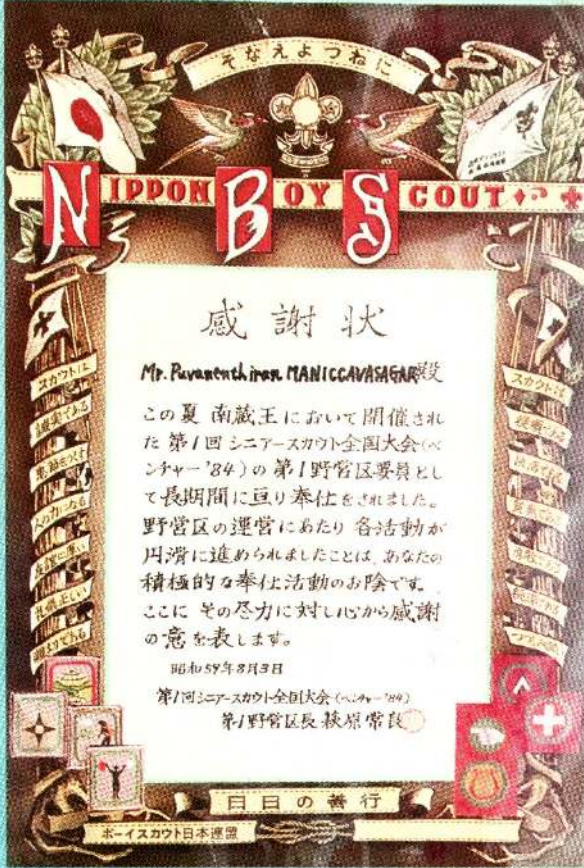 そなえよつねに
NIPPON BOY SCOUT
感謝状
Mr. Puvanenthiran MANICCAVASAGAR殿
この夏 南蔵王において開催され
た 第1回 シニアースカウト全国大会(ベ
ンチャー'84)の 第1野営区要員とし
て長期間に亘り奉仕をされました。
野営区の運営にあたり 各活動が
円滑に進められましたことは、あなたの
積極的な奉仕活動のお陰です。
ここに その尽力に対し心から感謝
の意を表します。
昭和59年8月3日
第1回シニアースカウト全国大会(ベンチャー'84)
第1野営区長 萩原常良
スカウトは
誠実である
人の力になる
礼儀正しい
スカウトは
快活である
質素である
つつしみ深い
日日の善行
ボーイスカウト日本連盟